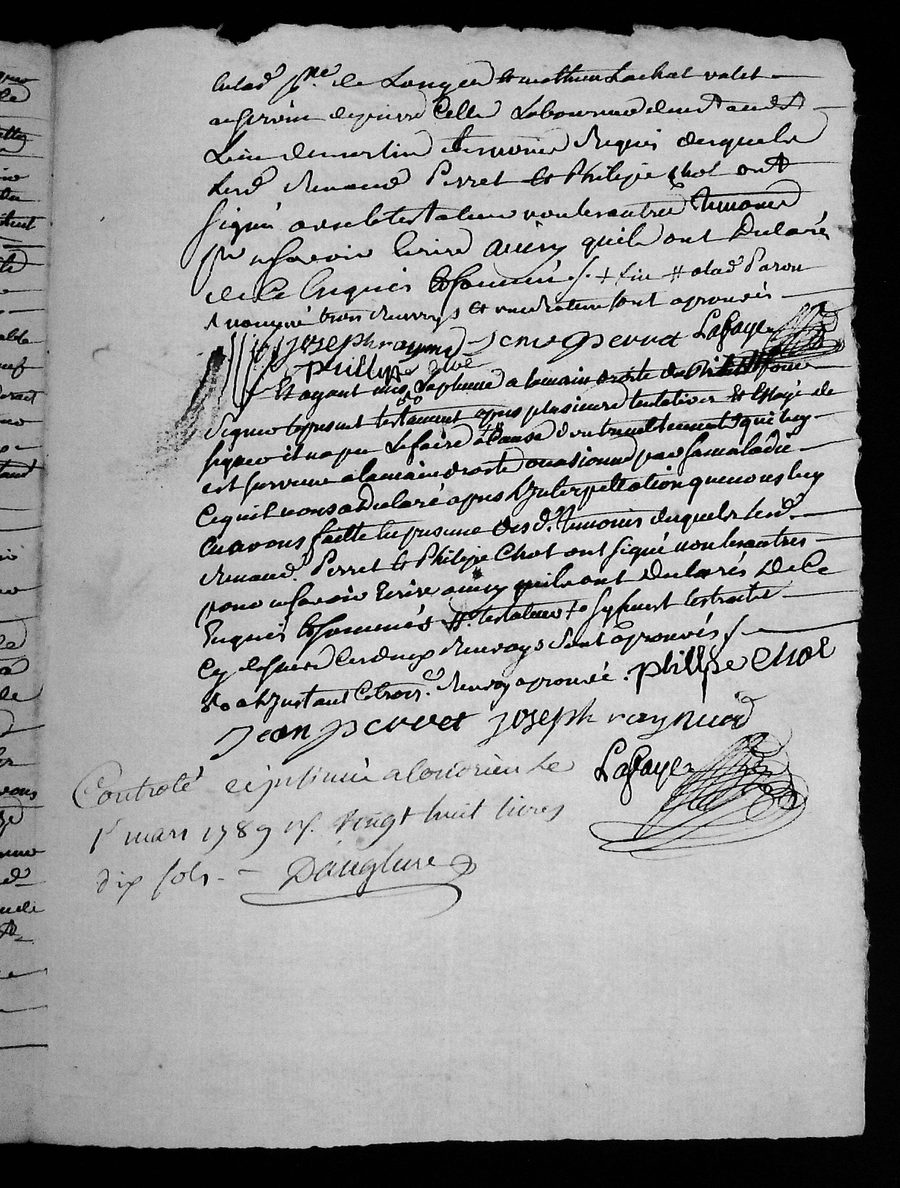 de Longes et mathieu Lachat valet
au service de pierre Celle Laboureur
Lieu de martin temoins Requis desquels
Lesd. Renaud Perret et Philipe Chol ont
signé avec le testateur non les autres temoins
pour ne savoir Ecrire ainsy qu'ils ont Declaré
de Ce Enquis et sommés
renvoys sont aprouvés
joseph raynaud jean perret Lafaye
philipe chol
Et ayant mis La plume a la main droite du
signer le present testament apres plusieurs tentatives et Essayé de
signer il n'a pu Le faire a Cause d'un tremblement qui luy
est survenu a la main droite ocasionné par sa maladie
Ce qu'il nous a declaré apres L'Interpellation que nous luy
en avons faitte En presence desd. temoins desquels lesd.
Renaud, Perret et Philipe Chol ont signé non les autres
pour ne savoir Ecrire ainsy qu'ils ont Declarés De Ce
Enquis et sommés testateur
Ces deux Renvoys sont aprouvés
Renvoy aprouvé. philipe chol
jean perret joseph raynaud
Controlé et insinué a Condrieu le
1er mars 1789 vingt huit livres Lafaye
dix sols. Danglure